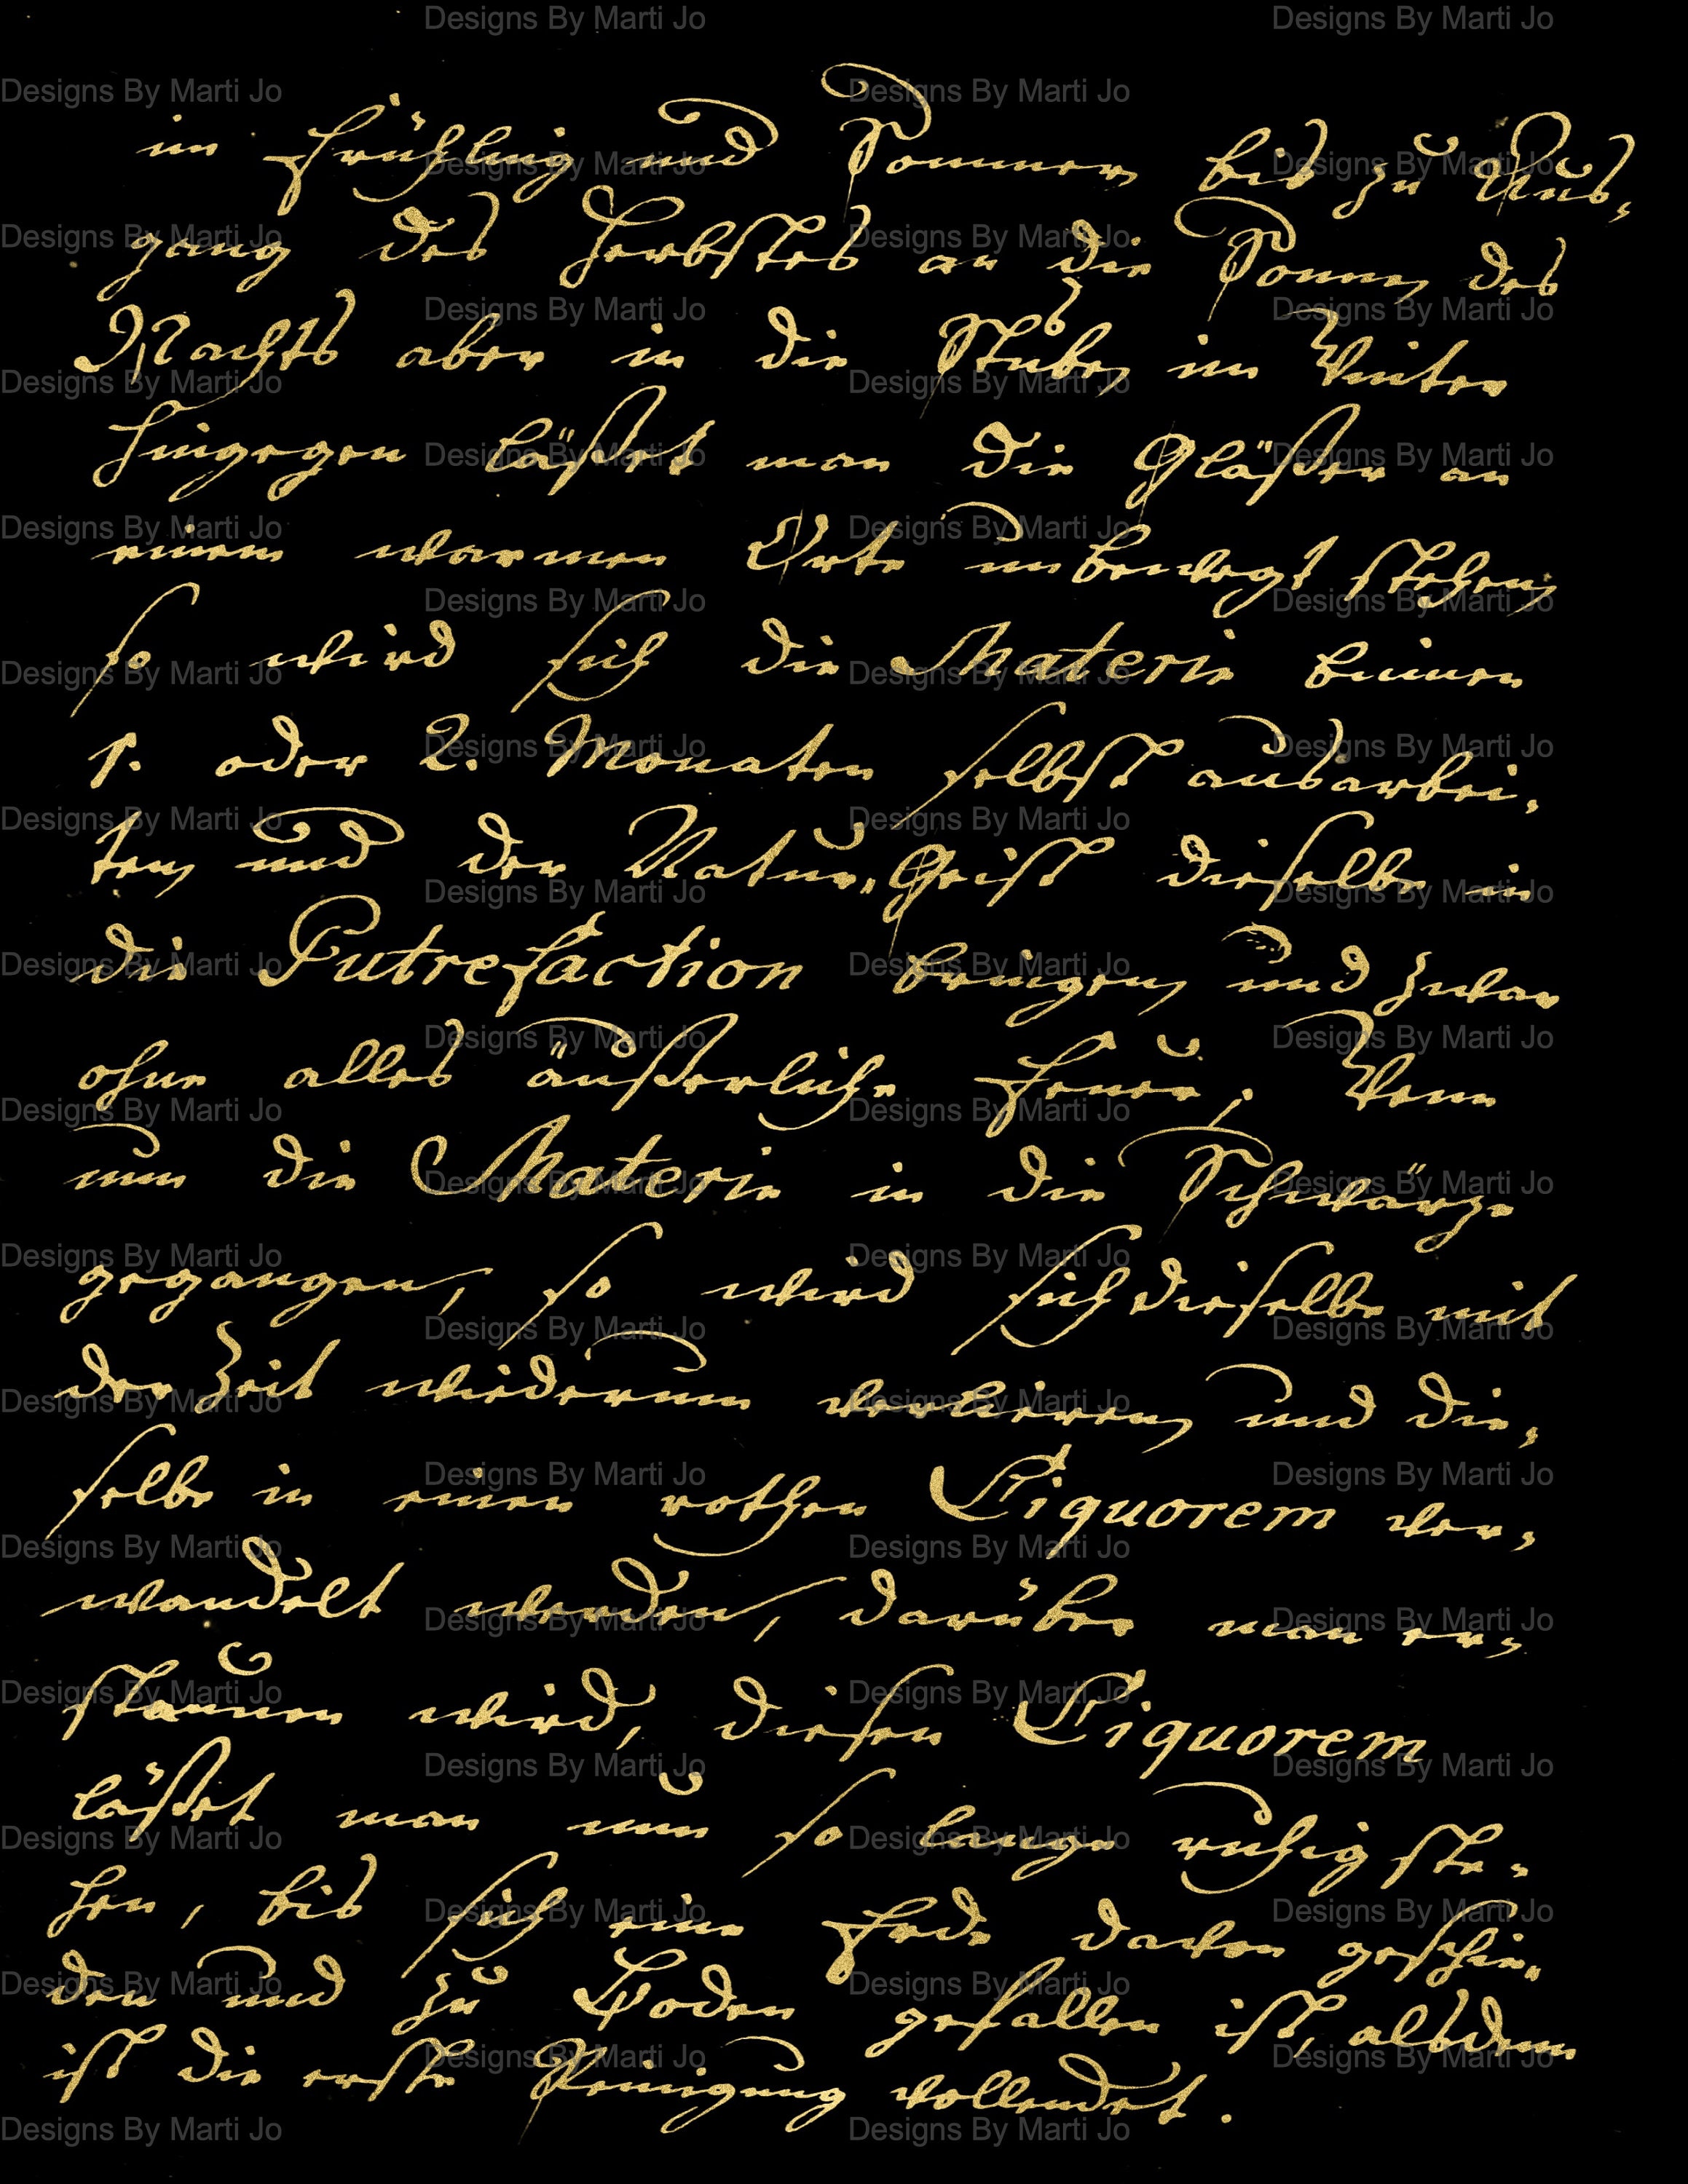 im Frühling und Sommer bis zu Aus,
gang des Herbstes an die Sonne, des
Nachts aber in die Stube, im Winter
hingegen läßet man die Gläßer an
einem warmen Orte unbewegt stehen,
so wird sich die Materie binnen
1. oder 2. Monaten selbst ausarbei,
ten, und der Natur„Geist dieselbe in
die Putrefaction bringen, und zwar
ohne alles äußerliche Feuer. Wenn
nun die Materie in die Schwärze
gegangen, so wird sich dieselbe mit
der Zeit wiederum verlieren, und die,
selbe in einen rothen Liquorem ver,
wandelt werden, darüber man er,
staunen wird, diesen Liquorem
läßet man nun so lange ruhig ste„
hen, bis sich eine Erde davon geschie„
den und zu Boden gefallen ist, alsdenn
ist die erste Reinigung vollendet.
Designs By Marti Jo